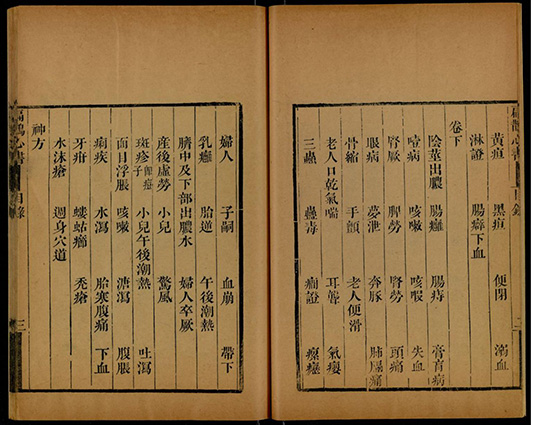 黃疸 黑疸 便閉 溺血
淋證 腸癖下血
卷下
陰莖出膿 腸癰 腸痔 膏肓病
噎病 咳嗽 咳暇 失血
腎厥 脾勞 腎勞 頭痛
眼病 夢泄 奔豚 肺膓痛
骨縮 手顫 老人便滑
老人口乾氣喘 耳聾 氣癭
三蟲 蠱毒 癎證 瘰癧
扁鵲心書 目錄 三
婦人 子嗣 血崩 帶下
乳癰 胎逆 午後潮熱
臍中及下部出膿水 婦人卒厥
産後虛勞 小兒 驚風
斑疹子 小兒午後潮熱 吐瀉
面目浮脹 咳嗽 溏瀉 腹脹
痢疾 水瀉 胎寒腹痛 下血
牙疳 螻蛄癤 禿瘡
水沫瘡 週身穴道
神方